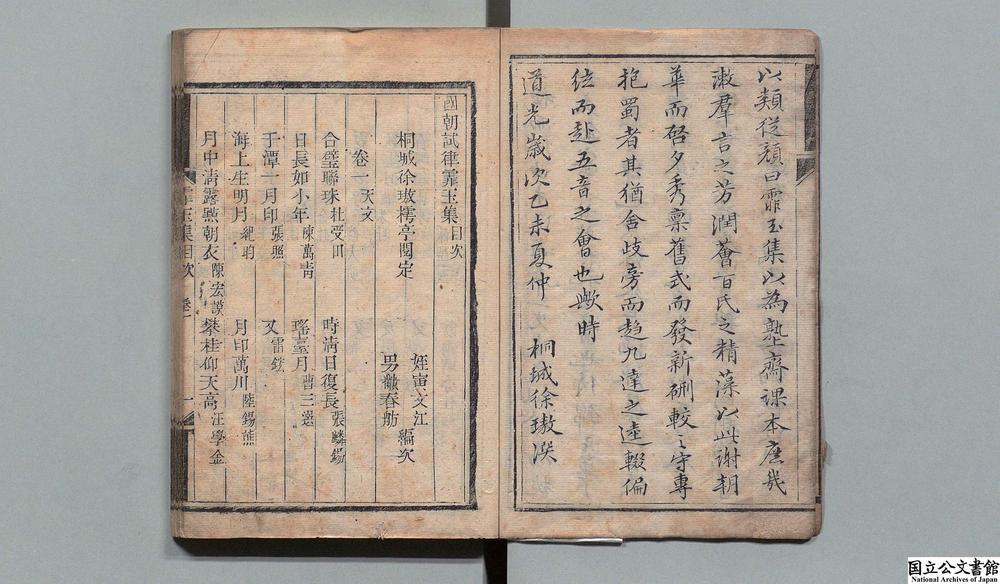 以類從顏曰霏玉集以為塾齋課本庶幾
漱羣言之芳潤薈百氏之精藻以此謝朝
華而啓夕秀稟舊式而發新硎較之守專
抱蜀者其猶舍歧旁而趋九達之逵輟偏
絃而赴五音之會也歟時
道光歲次乙未夏仲　桐城徐璈譔
國朝試律霏玉集目次
桐城徐璈樗亭閱定
姪寅文江
男徽春舫
編次
卷一天文
合璧聯珠杜受田　時清日復長張麟錫
日長如小年陳萬青　瑤臺月曹三選
千潭一月印張照　又雷鋐
海上生明月紀昀　月印萬川陸錫熊
月中清露點朝衣陳宏謨　攀桂仰天高汪學金
霏玉集目次　卷一　一
国立公文書館
National Archives of Japan